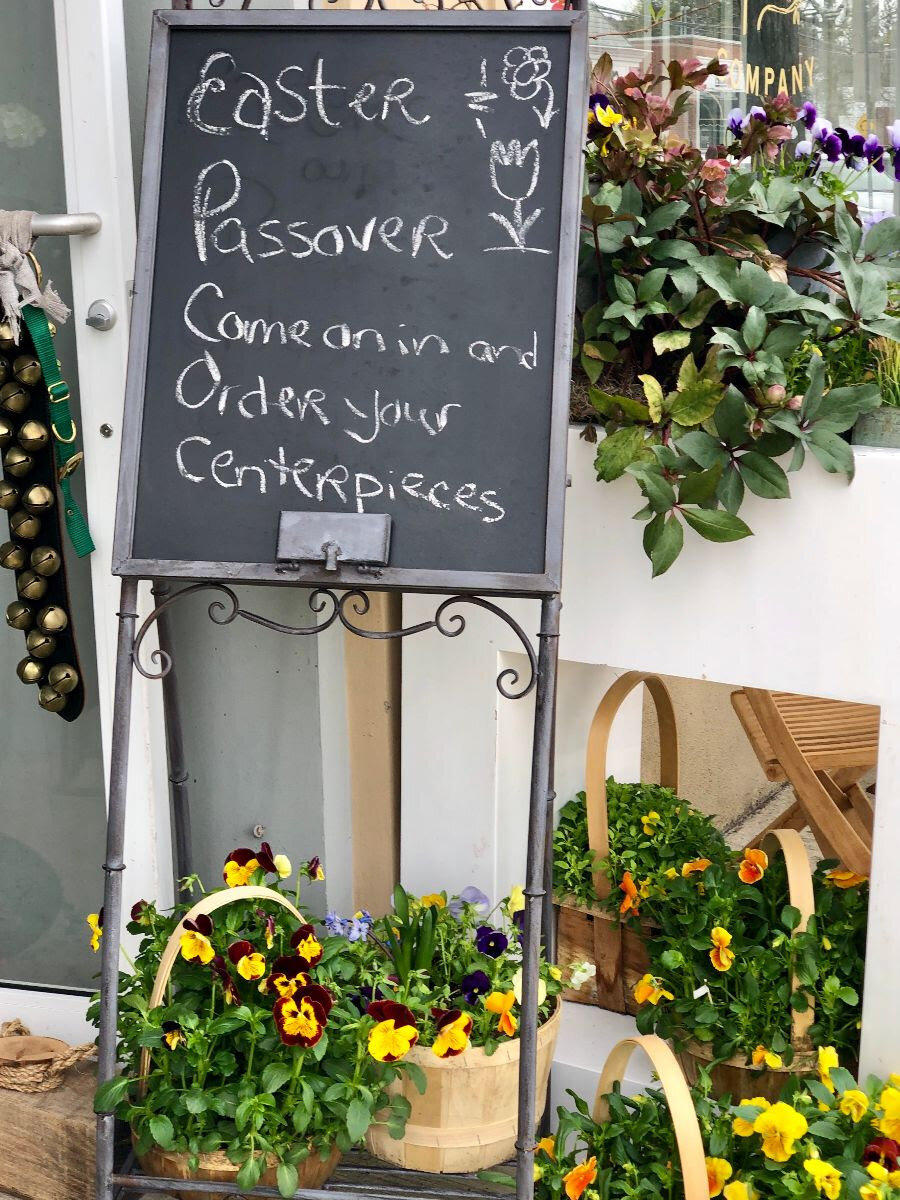 Easter
Passover
Come on in and
Order your
Centerpieces
COMPANY